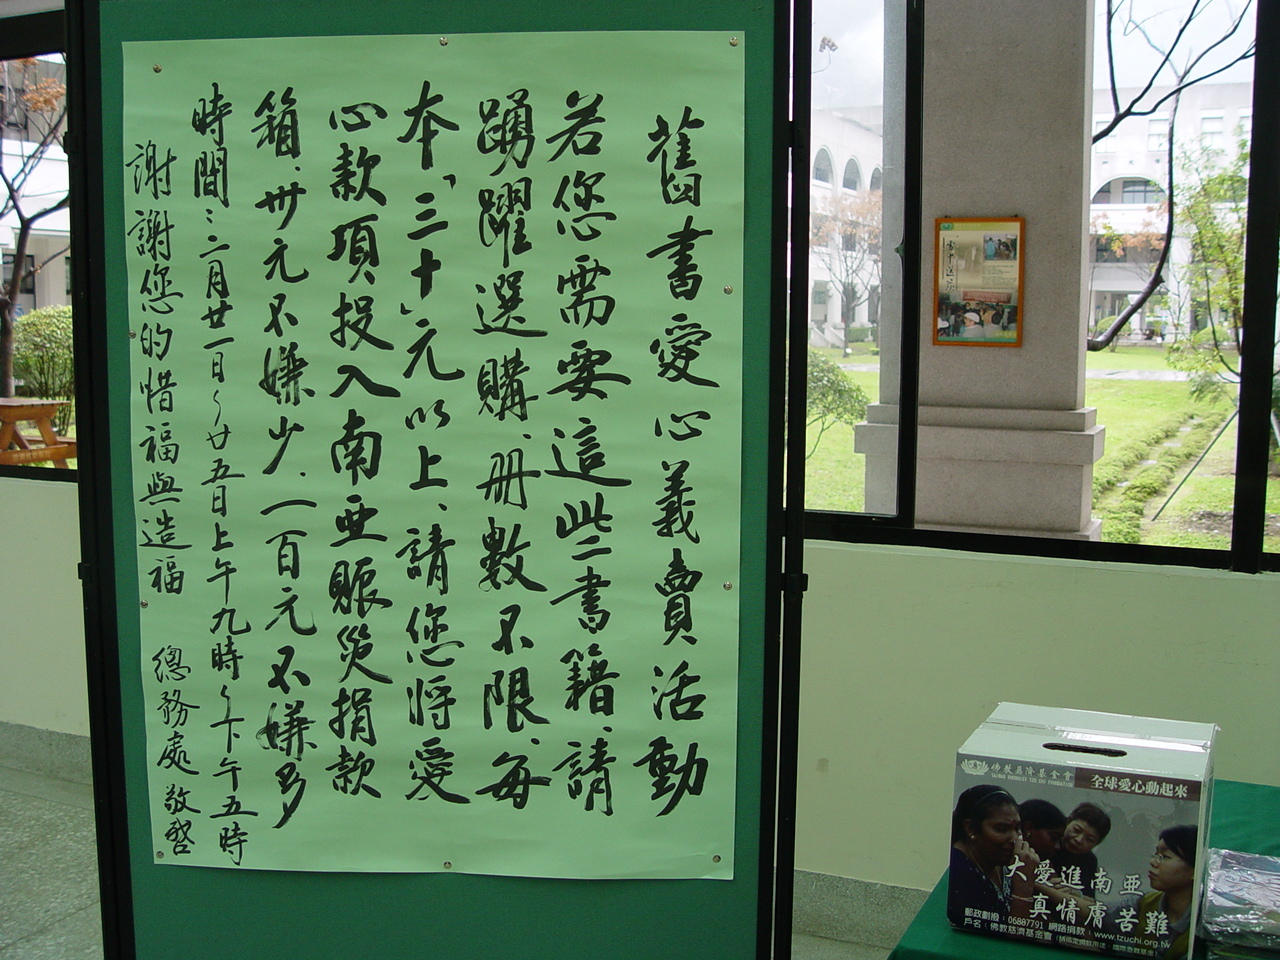 舊書愛心義賣活動
若您需要這些書籍、請
踴躍選購、册數不限、每
本「三十」元以上、請您將愛
心款項投入南亜賑災捐款
箱、卅元不嫌少、一百元不嫌多
時間：二月廿一日～廿五日上午九時～下午五時
謝謝您的惜福與造福 總務處敬啓
佛教慈濟基金會
TAIWAN BUDDHIST TZU CHI FOUNDATION
全球愛心動起來
大愛進南亜
真情膚苦難
郵政劃撥：06887791 網路捐款：www.tzuchi.org.tw
戶名：佛教慈濟基金會